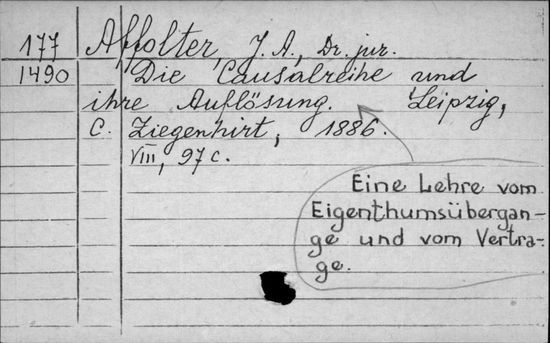 177 Affolter, J. A., Dr. jur.
1490 Die Causalreihe und
ihre Auflösung. Leipzig,
C. Ziegenhirt, 1886.
VIII, 97 c.
Eine Lehre vom
Eigenthumsübergan-
ge und vom Vertra-
ge.